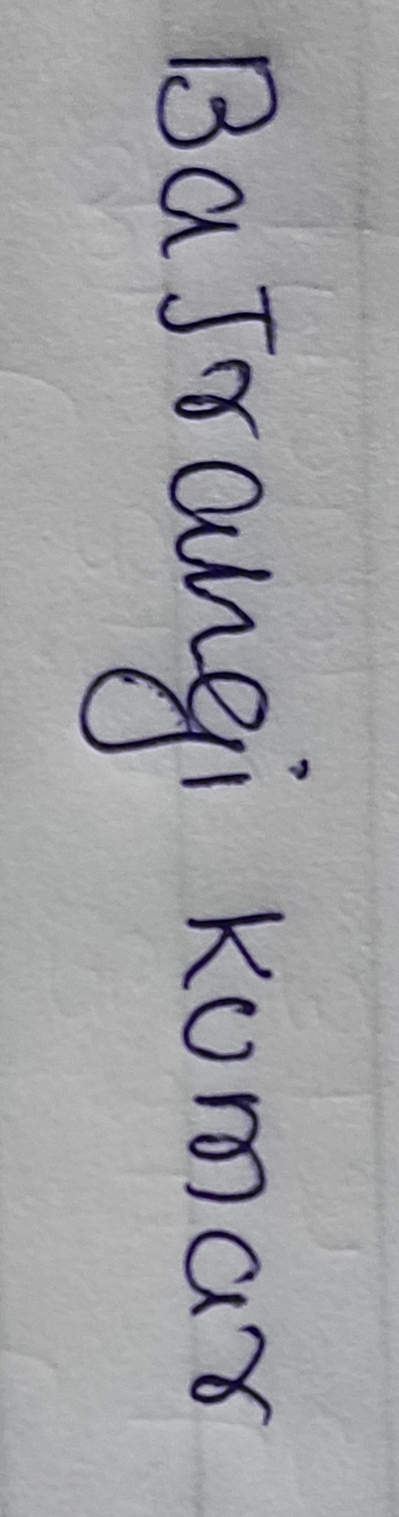 BaJrangi Kumar